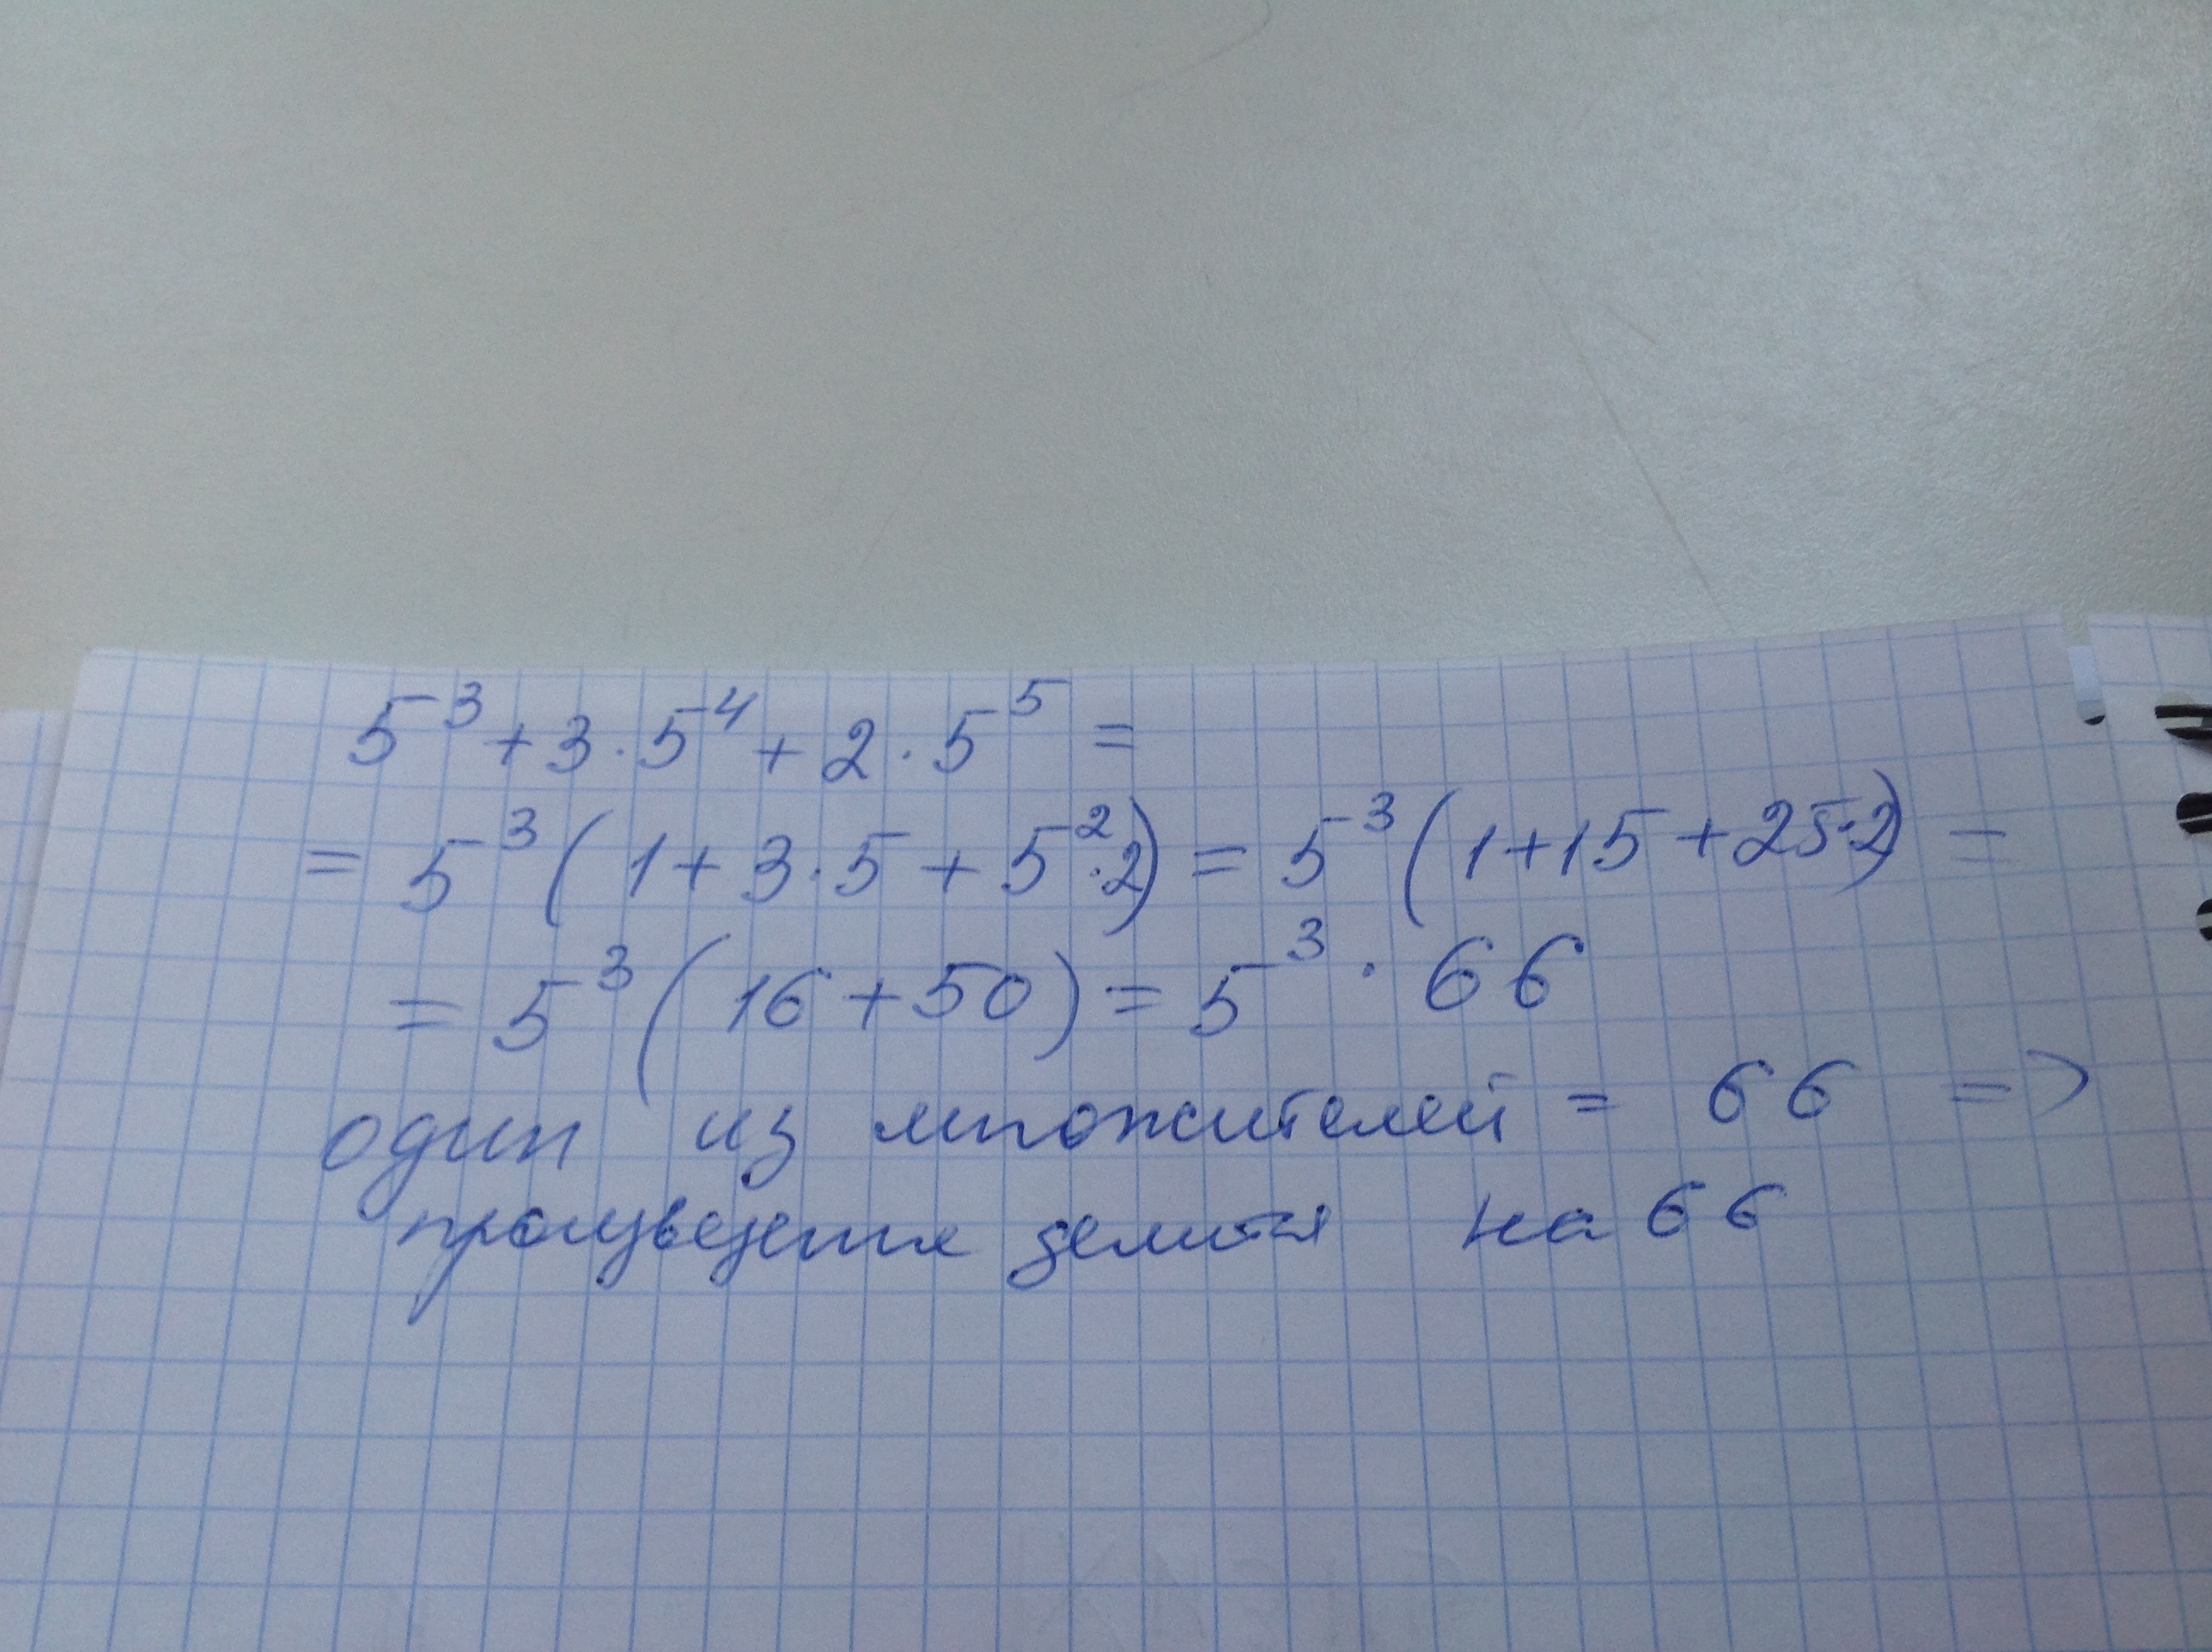 5³ + 3 · 5⁴ + 2 · 5⁵ =
= 5³ (1 + 3 · 5 + 5² · 2) = 5³ (1 + 15 + 25 · 2) =
= 5³ (16 + 50) = 5³ · 66
один из множителей = 66 =>
произведение делится на 66